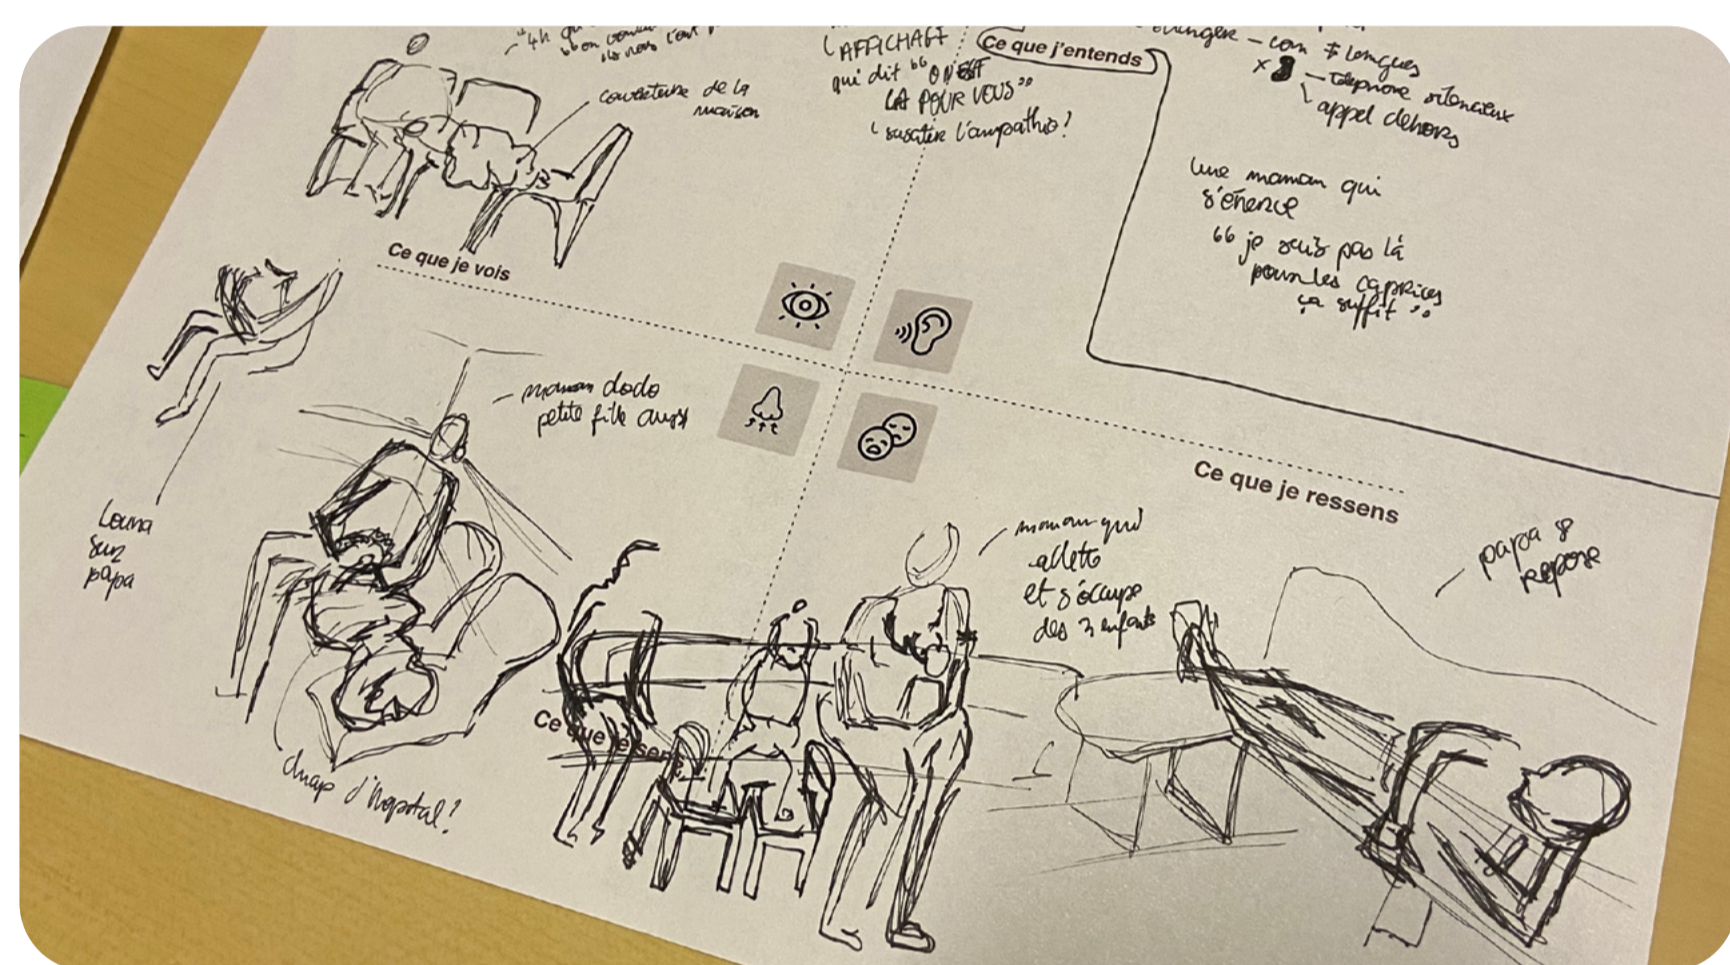 "4h
couverture de la
maison
L'AFFICHAGE
qui dit "ON EST
LÀ POUR VOUS"
susciter l'empathie?
Ce que j'entends
— com ≠ langues
— telephone silencieux
appel dehors
une maman qui
s'énerve
"je suis pas là
pour les caprices
ça suffit"
Ce que je vois
— maman dodo
petite fille aussi
Louna
sur
papa
drap d'hopital?
Ce que je ressens
maman qui
allaite
et s'occupe
des enfants
papa
repose
Ce que je sens